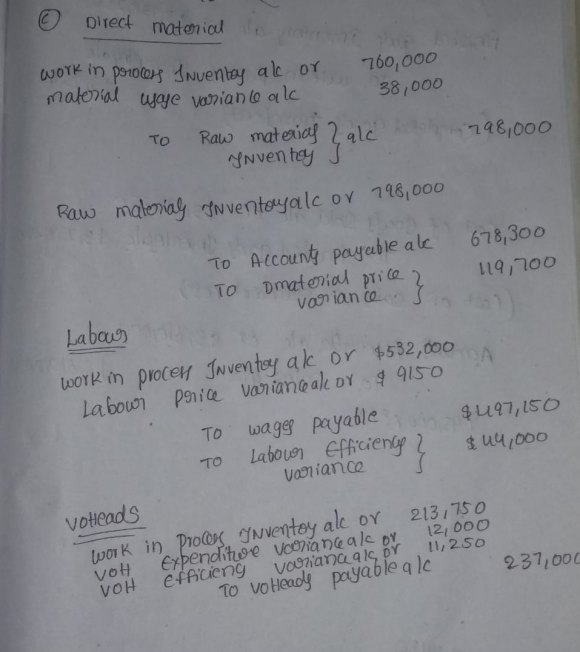 (c) Direct material
work in process Inventory a/c Dr 760,000
material usage variance a/c 38,000
To Raw materials } a/c 798,000
Inventory
Raw materials Inventory a/c Dr 798,000
To Accounts payable a/c 678,300
To Dmaterial price } 119,700
variance
Labour
work in process Inventory a/c Dr $532,000
Labour price variance a/c Dr $ 9150
To wages payable $497,150
To Labour Efficiency } $ 44,000
variance
VOHeads
work in process Inventory a/c Dr 213,750
VOH Expenditure variance a/c Dr 12,000
VOH efficieny variance a/c Dr 11,250
To VOHeads payable a/c 237,000